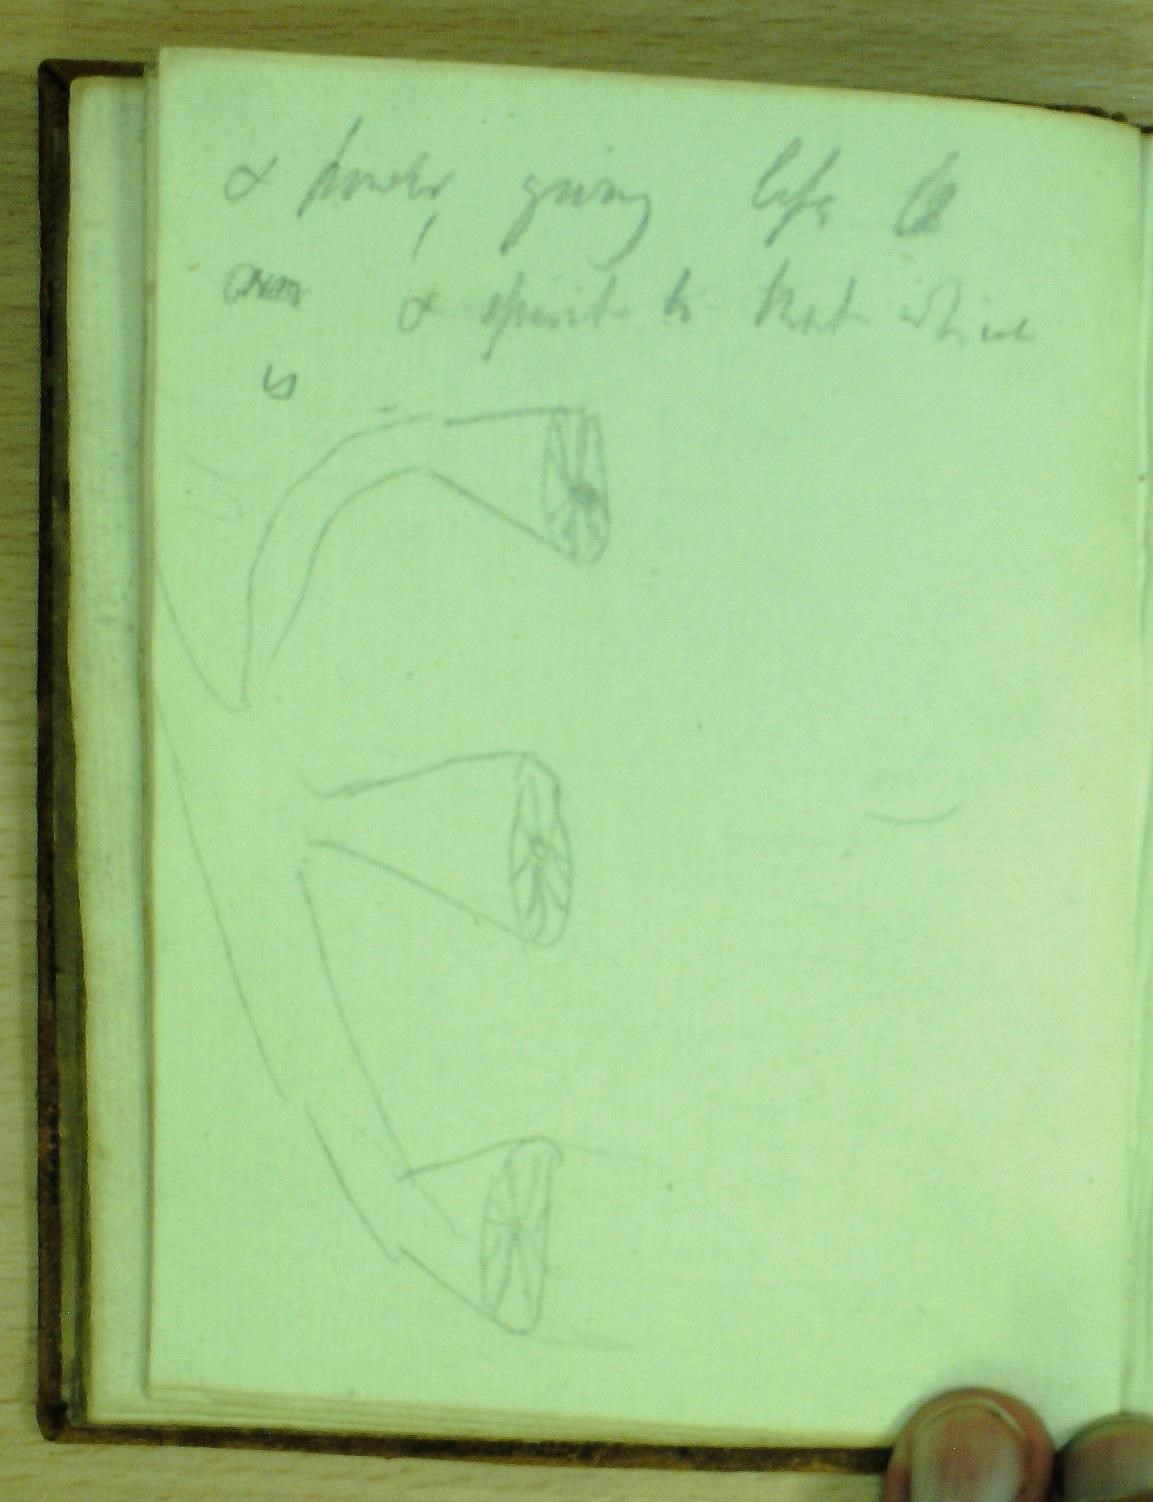 & power, giving life to
& spirit to that which
is